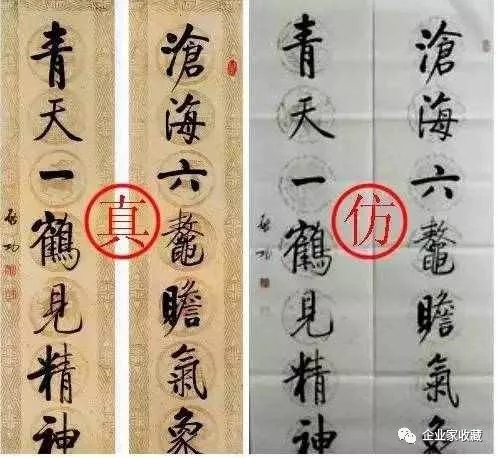 滄海六鼇瞻氣象
青天一鶴見精神
启功
真
滄海六鼇瞻氣象
青天一鶴見精神
启功
仿
企业家收藏